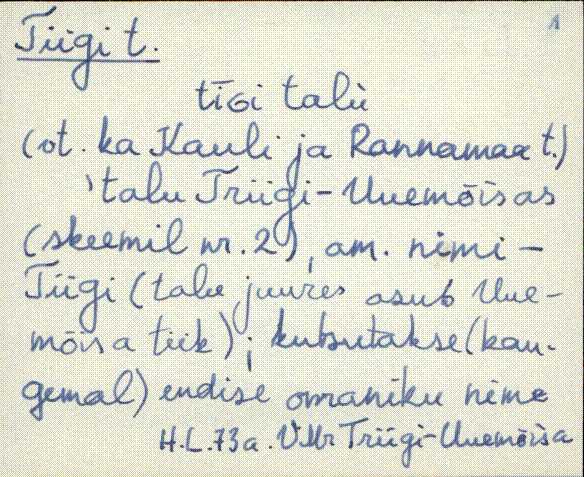 Tiigi t.
tīGi talù
(vt. ka Kauli ja Rannamaa t.)
'talu Triigi-Uuemõisas
(skeemil nr. 2), am. nimi -
Tiigi (talu juures asub Uue-
mõisa tiik); kutsutakse (kau-
gemal) endise omaniku nime
H.L. 73 a. VMr Triigi-Uuemõisa